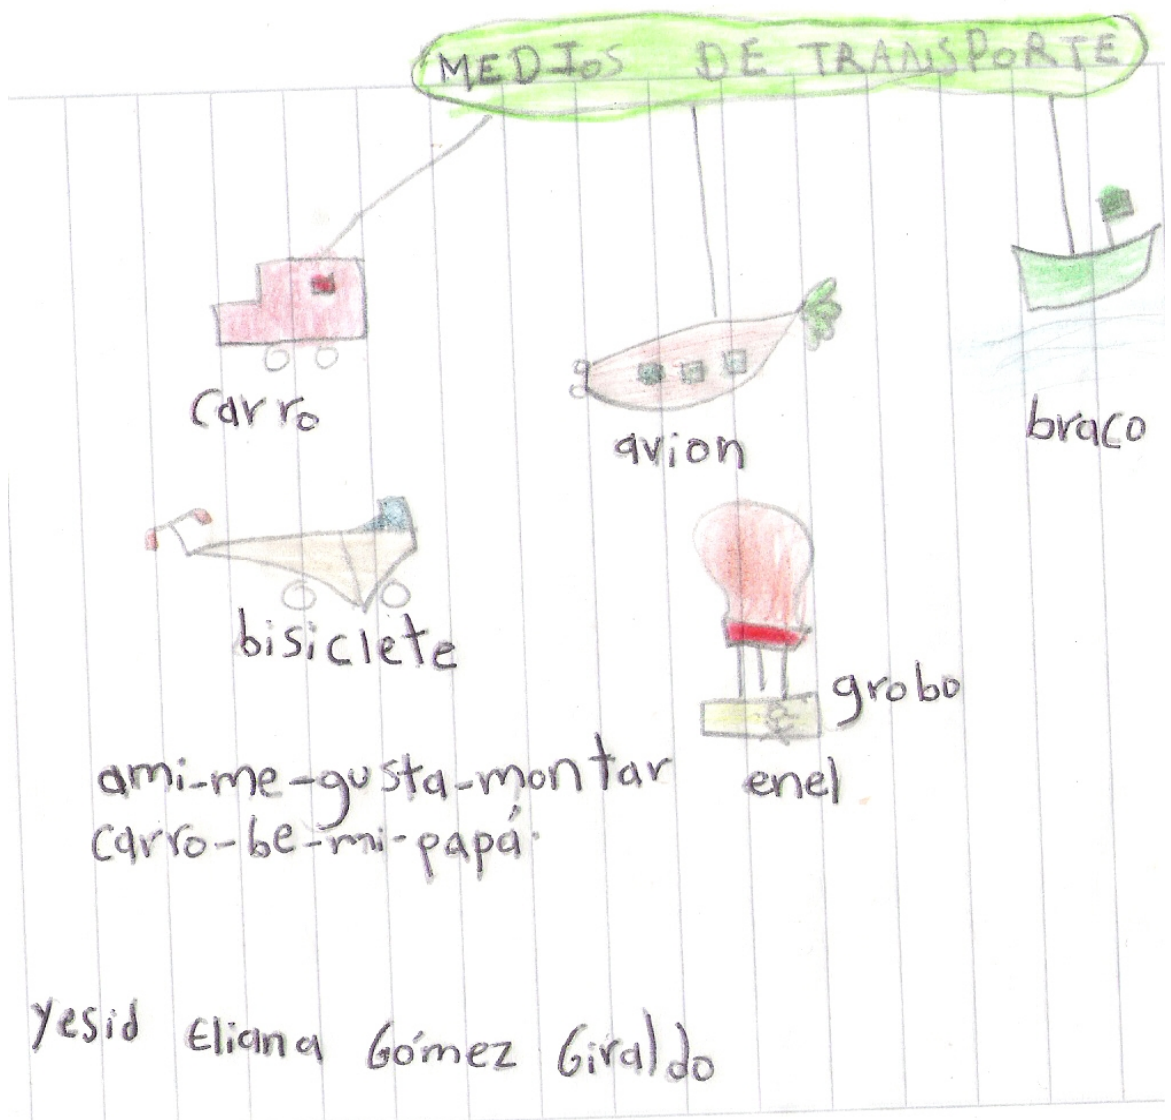 MEDIOS DE TRANSPORTE
carro
avion
braco
bisiclete
grobo
ami-me-gusta-montar enel
carro-be-mi-papá.
Yesid Eliana Gómez Giraldo